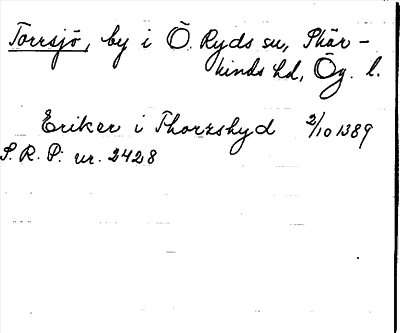 Torrsjö, by i Ö. Ryds sn, Skär-
kinds hd, Ög. l.
Eriker i Thorzshyd 2/10 1389
S. R. P. nr. 2428